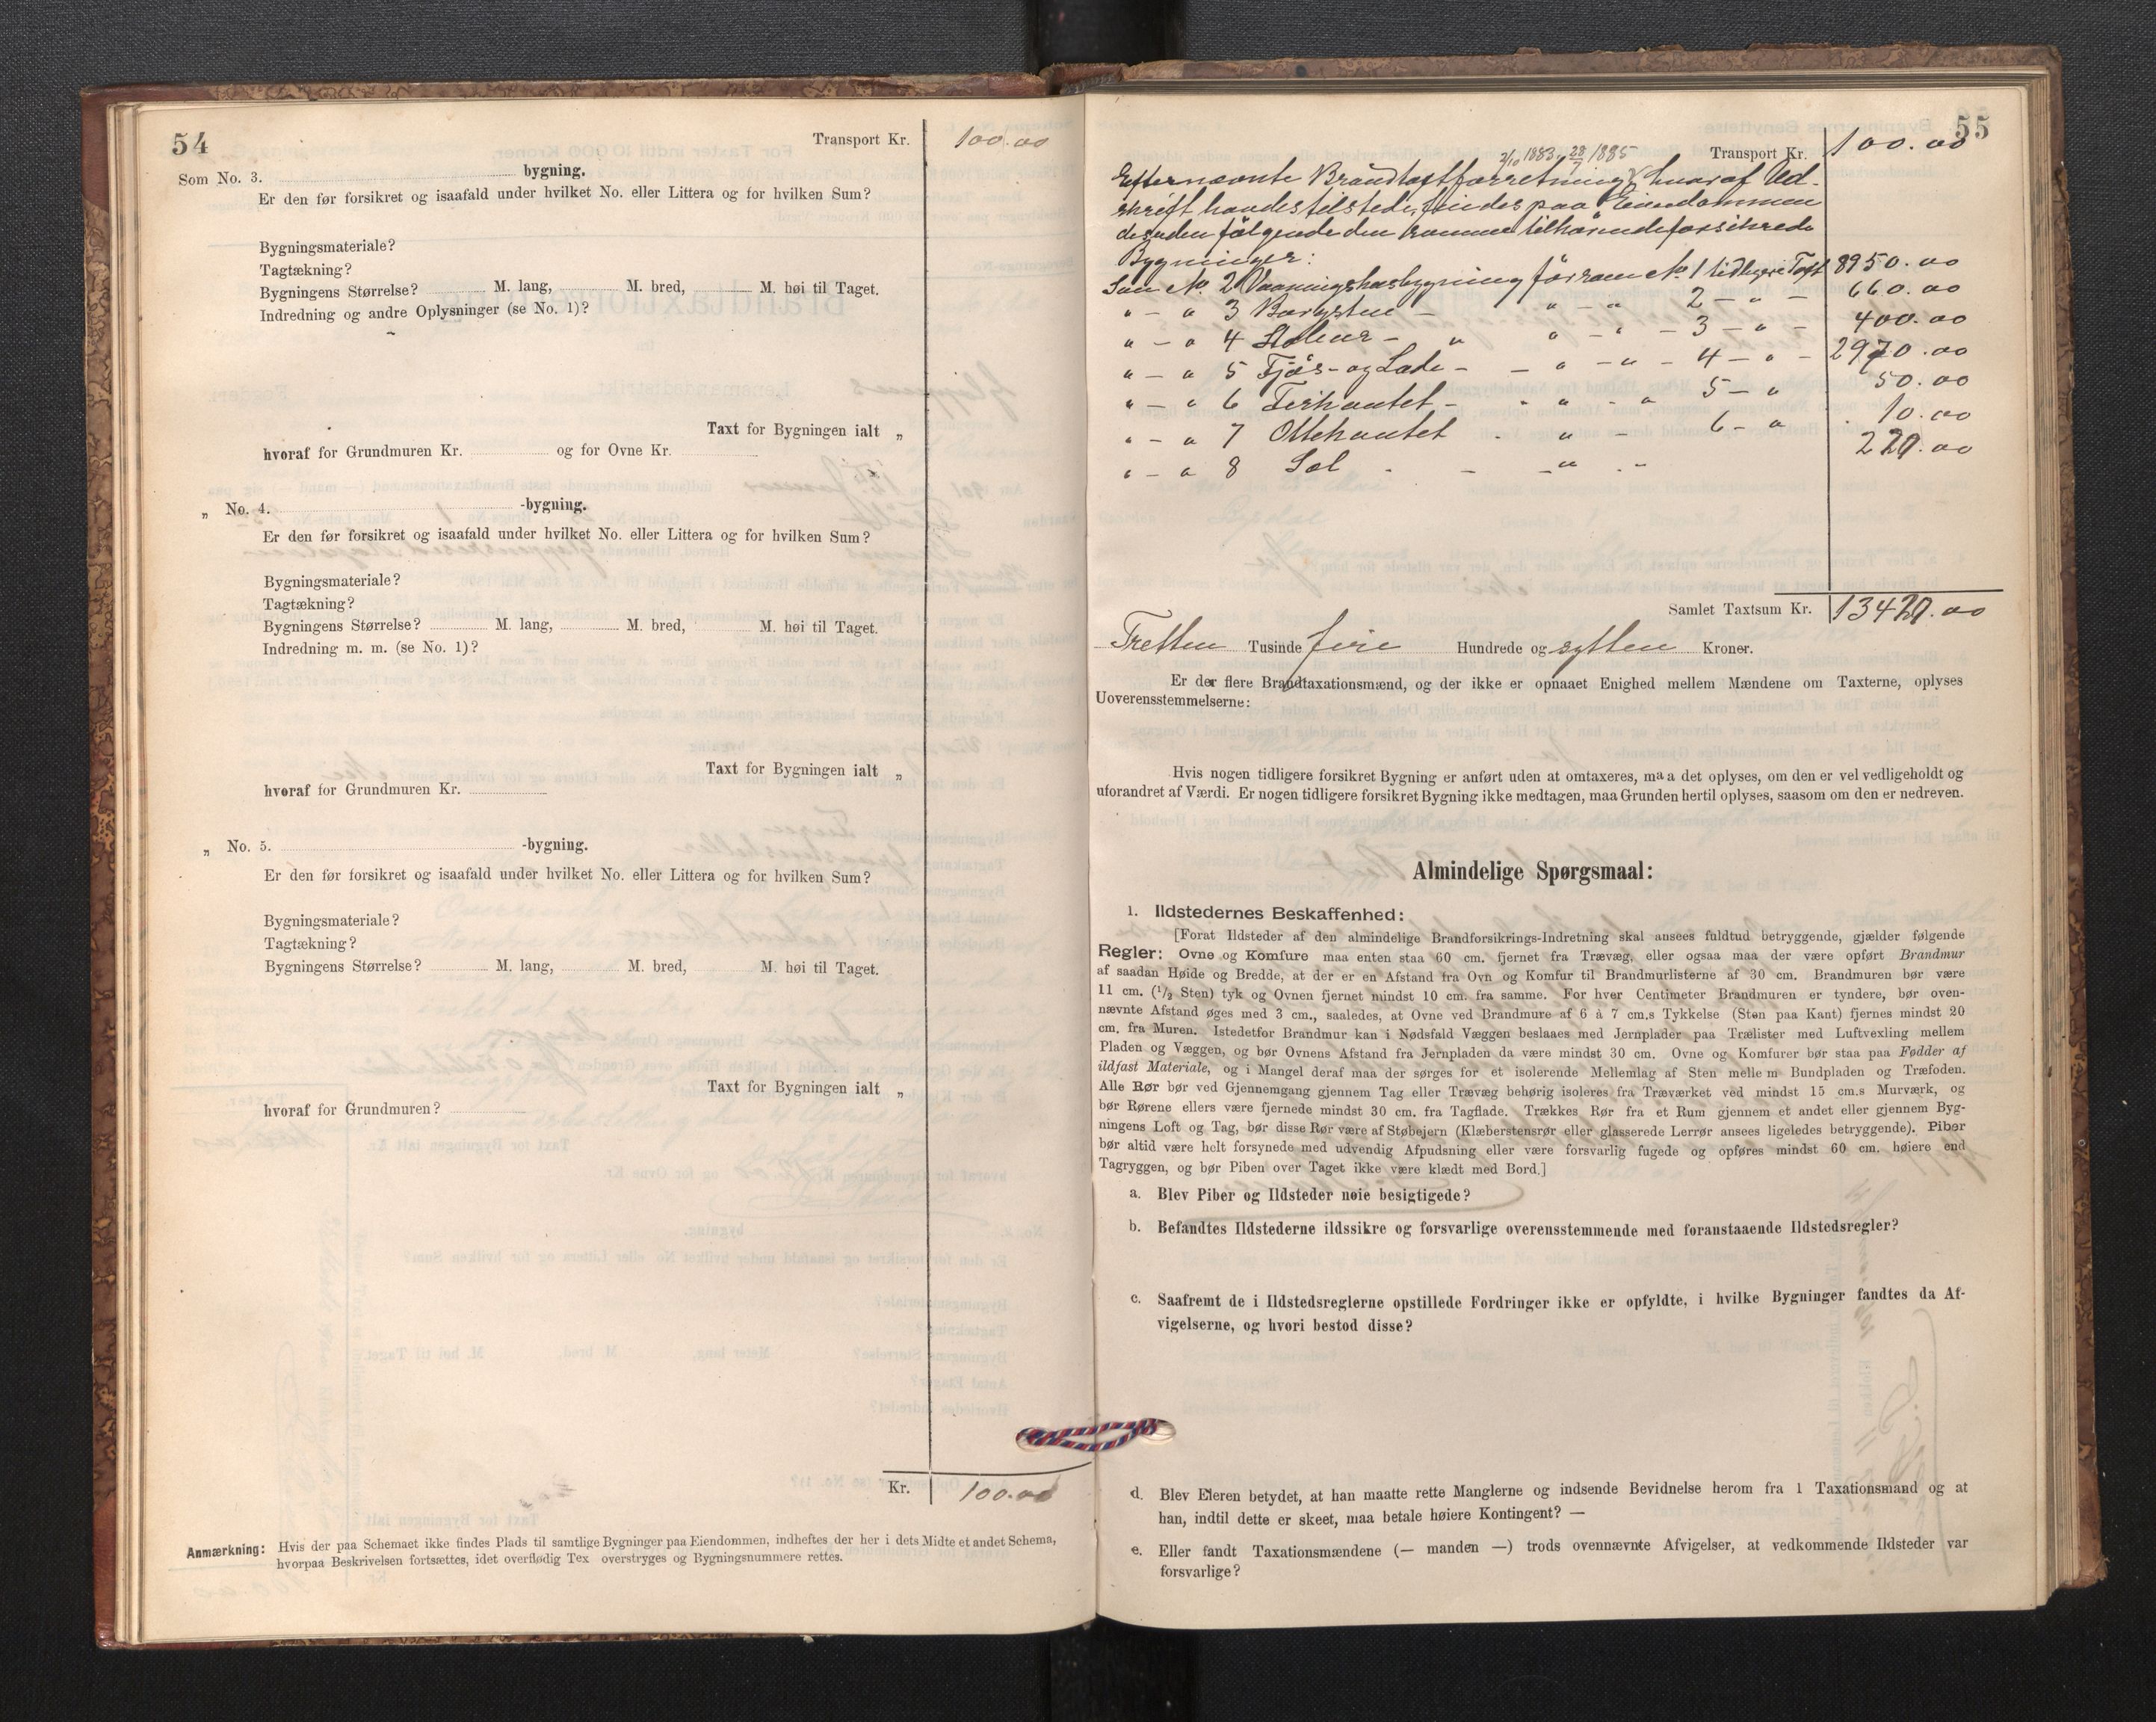 54
Transport Kr. 100.00
Som No. 3. bygning.
Er den før forsikret og isaafald under hvilket No. eller Littera og for hvilken Sum?
Bygningsmateriale?
Tagtækning?
Bygningens Størrelse? M. lang, M. bred, M. høi til Taget.
Indredning og andre Oplysninger (se No. 1)?
Taxt for Bygningen ialt „
hvoraf for Grundmuren Kr. og for Ovne Kr.
„ No. 4. -bygning.
Er den før forsikret og isaafald under hvilket No. eller Littera og for hvilken Sum?
Bygningsmateriale?
Tagtækning?
Bygningens Størrelse? M. lang, M. bred, M. høi til Taget.
Indredning m. m. (se No. 1)?
Taxt for Bygningen ialt „
hvoraf for Grundmuren Kr.
„ No. 5. -bygning.
Er den før forsikret og isaafald under hvilket No. eller Littera og for hvilken Sum?
Bygningsmateriale?
Tagtækning?
Bygningens Størrelse? M. lang, M. bred, M. høi til Taget.
Taxt for Bygningen ialt „
hvoraf for Grundmuren?
Kr. 100.00
Anmærkning: Hvis der paa Schemaet ikke findes Plads til samtlige Bygninger paa Eiendommen, indheftes der her i dets Midte et andet Schema,
hvorpaa Beskrivelsen fortsættes, idet overflødig Tex overstryges og Bygningsnummere rettes.
55
Transport Kr. 100.00
2/10 1883, 28/7 1885
Efternævnte Brandtaxtforretning, hvoraf Ud-
skrift havdes tilstede, findes paa Eiendommen
desuden følgende den samme tilhørende forsikrede
Bygninger:
Som No. 2 Vaaningshusbygning før som No. 1 tidligere Taxt 8950.00
" — " 3 Borgstue — " — " 2 — " — 660.00
" — " 4 Stoleur — " " — " — 3 — " — 400.00
" — " 5 Fjøs- og Lade — — " — " — 4 — " — 2970.00
" — " 6 Firkantet — " " - " 5 — " 50.00
" — " 7 Ottekantet - " — 6 — " 10.00
" — " 8 Sel - — — " - - 220.00
Samlet Taxtsum Kr. 13420.00
Tretten Tusinde fire Hundrede og sytten Kroner.
Er der flere Brandtaxationsmænd, og der ikke er opnaaet Enighed mellem Mændene om Taxterne, oplyses
Uoverensstemmelserne:
Hvis nogen tidligere forsikret Bygning er anført uden at omtaxeres, maa det oplyses, om den er vel vedligeholdt og
uforandret af Værdi. Er nogen tidligere forsikret Bygning ikke medtagen, maa Grunden hertil oplyses, saasom om den er nedreven.
Almindelige Spørgsmaal:
1. Ildstedernes Beskaffenhed:
[Forat Ildsteder af den almindelige Brandforsikrings-Indretning skal ansees fuldtud betryggende, gjælder følgende
Regler: Ovne og Komfure maa enten staa 60 cm. fjernet fra Trævæg, eller ogsaa maa der være opført Brandmur
af saadan Høide og Bredde, at der er en Afstand fra Ovn og Komfur til Brandmurlisterne af 30 cm. Brandmuren bør være
11 cm. (1/2 Sten) tyk og Ovnen fjernet mindst 10 cm. fra samme. For hver Centimeter Brandmuren er tyndere, bør oven-
nævnte Afstand øges med 3 cm., saaledes, at Ovne ved Brandmure af 6 à 7 cm.s Tykkelse (Sten paa Kant) fjernes mindst 20
cm. fra Muren. Istedetfor Brandmur kan i Nødsfald Væggen beslaaes med Jernplader paa Trælister med Luftvexling mellem
Pladen og Væggen, og bør Ovnens Afstand fra Jernpladen da være mindst 30 cm. Ovne og Komfurer bør staa paa Fødder af
ildfast Materiale, og i Mangel deraf maa der sørges for et isolerende Mellemlag af Sten mellem Bundpladen og Træfoden.
Alle Rør bør ved Gjennemgang gjennem Tag eller Trævæg behørig isoleres fra Træværket ved mindst 15 cm.s Murværk, og
bør Rørene ellers være fjernede mindst 30 cm. fra Tagflade. Trækkes Rør fra et Rum gjennem et andet eller gjennem Byg-
ningens Loft og Tag, bør disse Rør være af Støbejern (Klæberstensrør eller glasserede Lerrør ansees ligeledes betryggende). Piber
bør altid være helt forsynede med udvendig Afpudsning eller være forsvarlig fugede og opføres mindst 60 cm. høiere end
Tagryggen, og bør Piben over Taget ikke være klædt med Bord.]
a. Blev Piber og Ildsteder nøie besigtigede?
b. Befandtes Ildstederne ildssikre og forsvarlige overensstemmende med foranstaaende Ildstedsregler?
c. Saafremt de i Ildstedsreglerne opstillede Fordringer ikke er opfyldte, i hvilke Bygninger fandtes da Af-
vigelserne, og hvori bestod disse?
d. Blev Eieren betydet, at han maatte rette Manglerne og indsende Bevidnelse herom fra 1 Taxationsmand og at
han, indtil dette er skeet, maa betale høiere Kontingent? —
e. Eller fandt Taxationsmændene (— manden —) trods ovennævnte Afvigelser, at vedkommende Ildsteder var
forsvarlige?